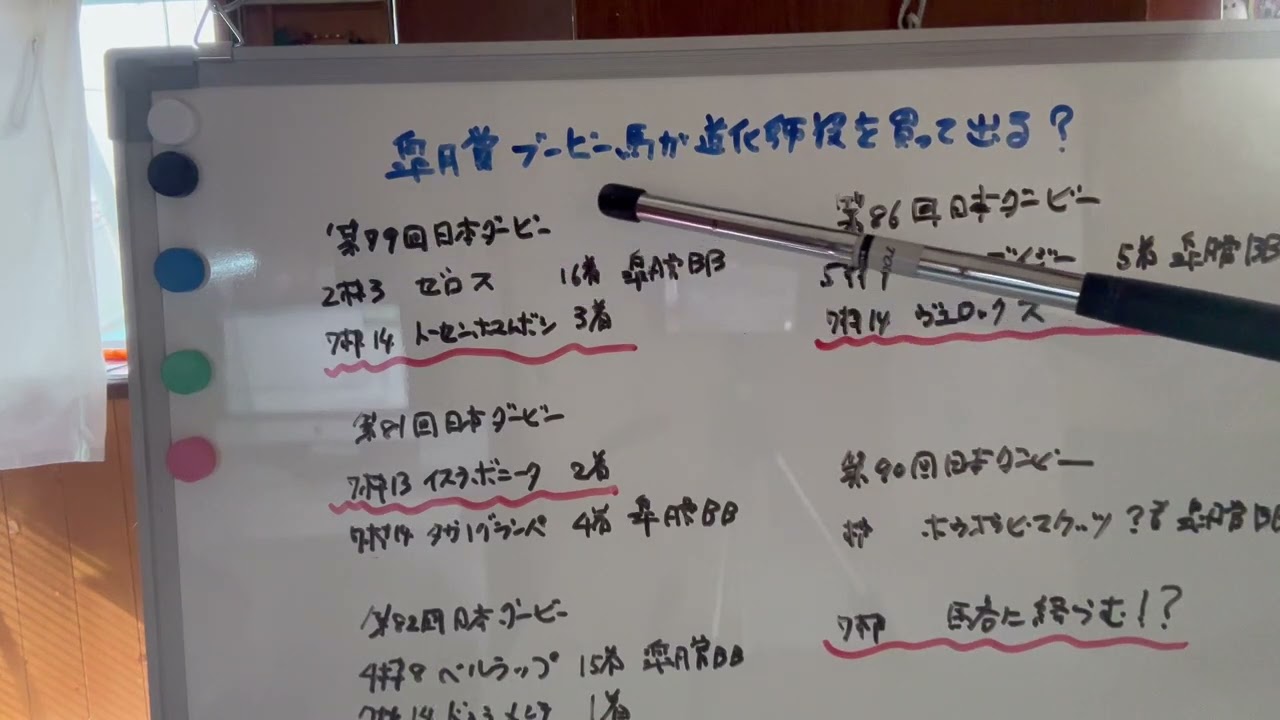 皐月賞ブービー馬が道化師役を買って出る?
第79回日本ダービー
2枠3 ゼロス 16着 皐月賞BB
7枠14 トーセンホマレボシ 3着
第81回日本ダービー
7枠13 イスラボニータ 2着
7枠14 タガノグランパ 4着 皐月賞BB
第82回日本ダービー
4枠8 ベルラップ 15着 皐月賞BB
7枠14 ドゥラメンテ 1着
第86回日本ダービー
5着 皐月賞BB
7枠14 ヴェロックス
第90回日本ダービー
枠 ホウオウビスケッツ ?着 皐月賞BB
7枠 馬券に絡つむ!?